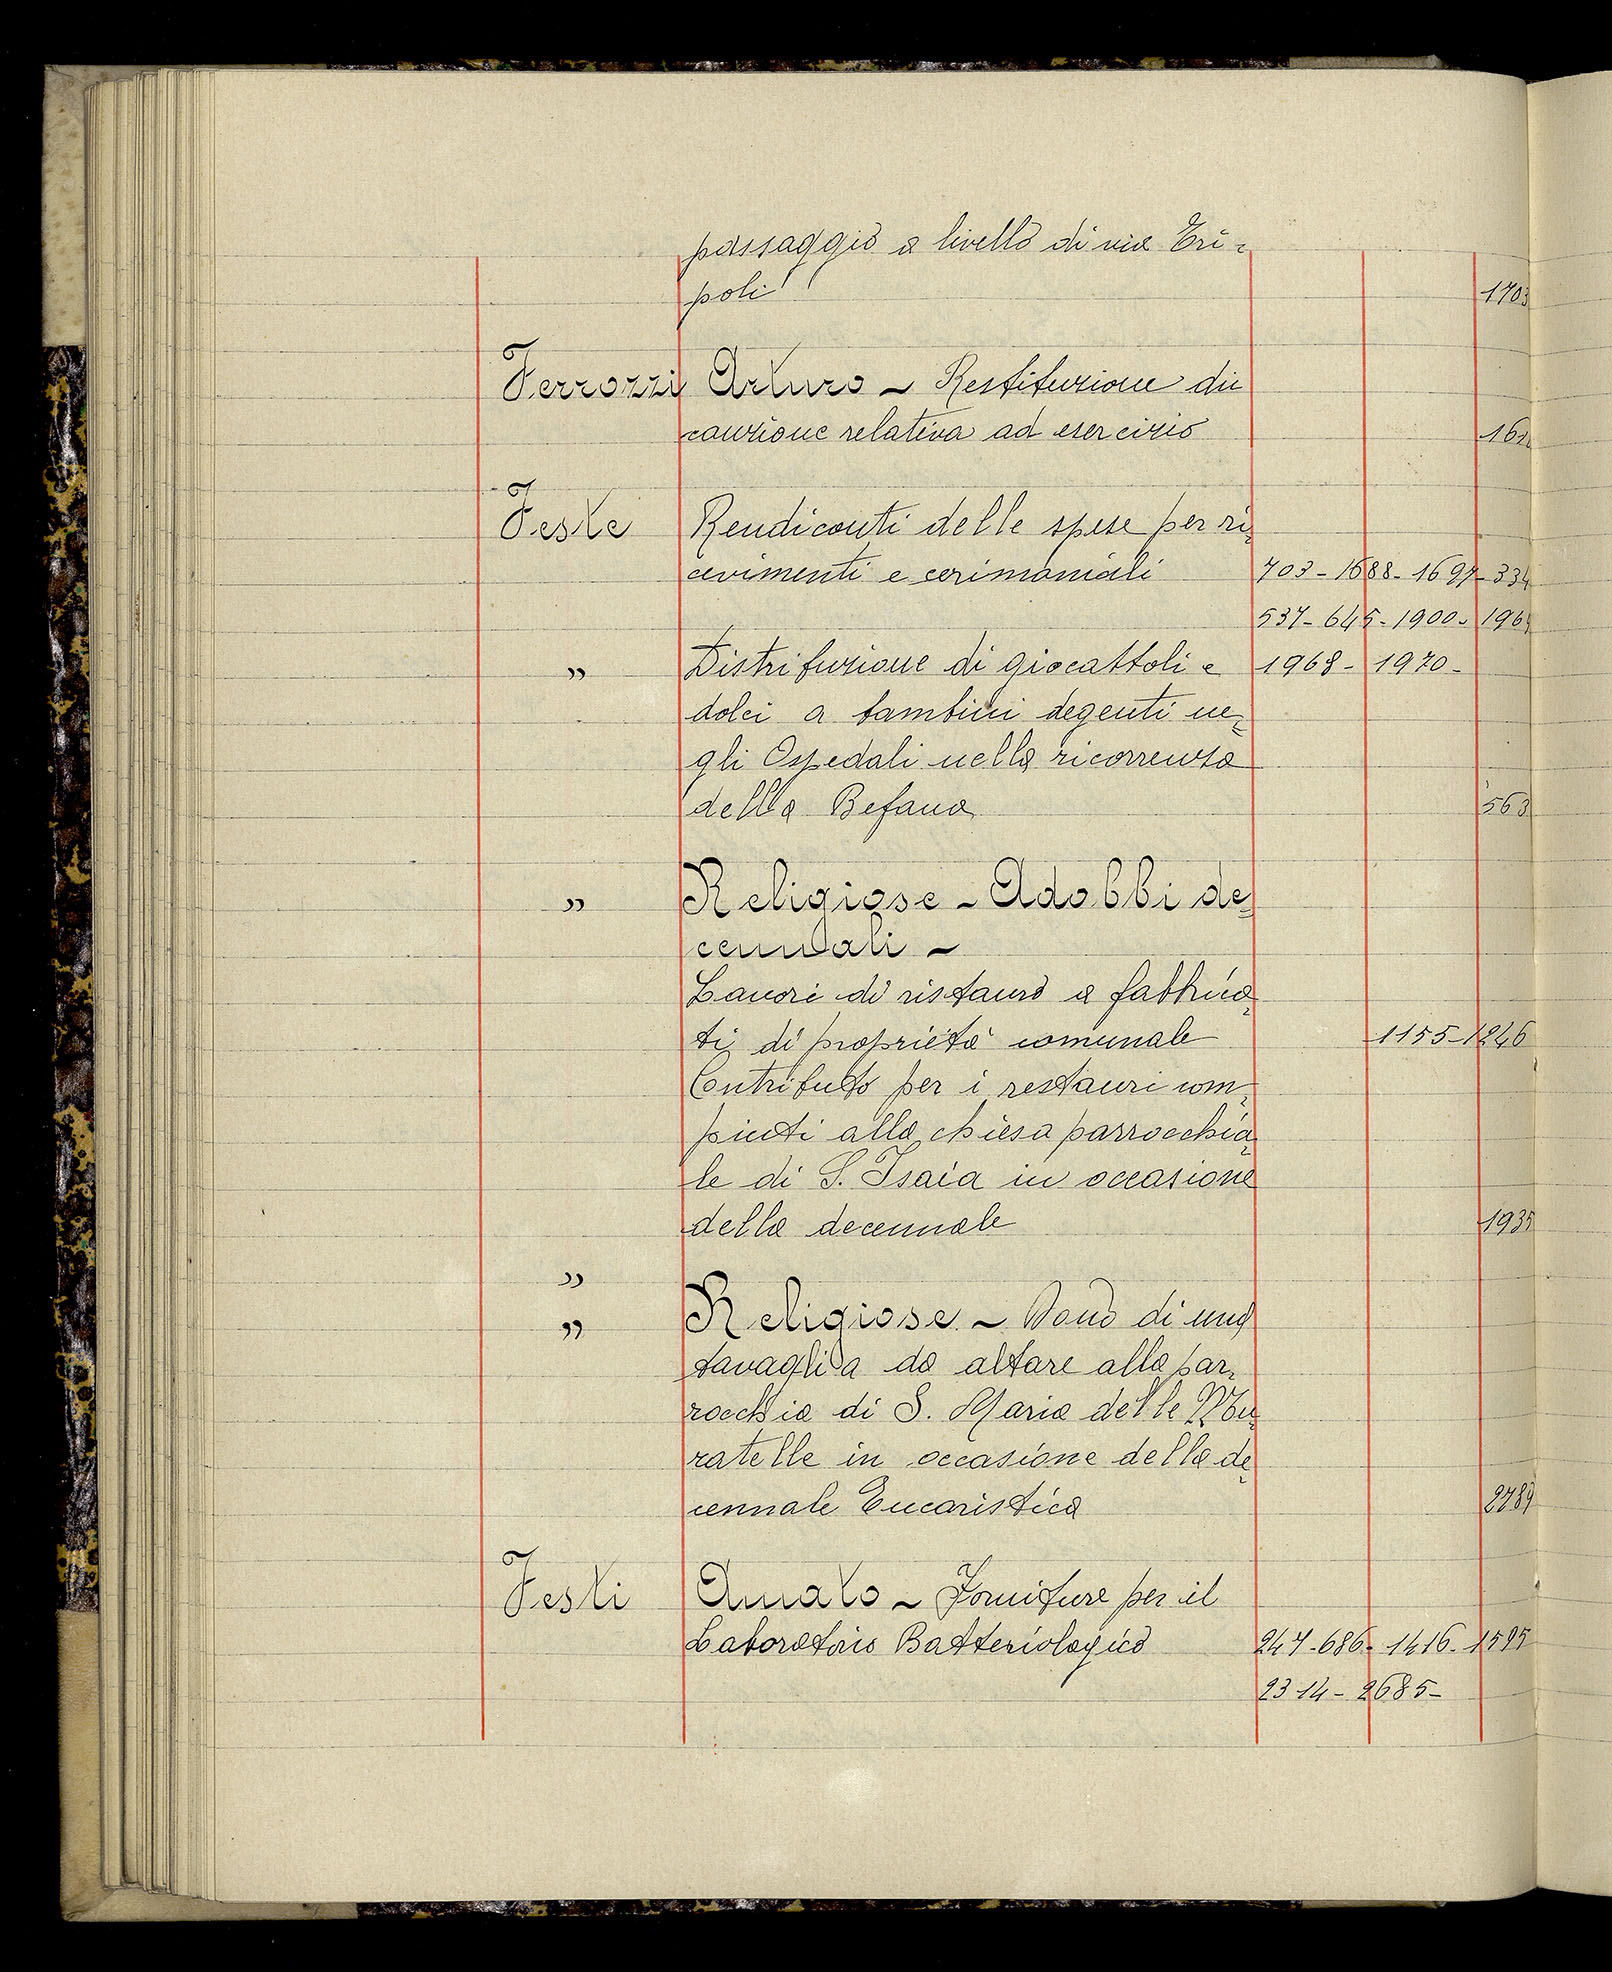 passaggio a livello di via Tri=
poli 1703
Ferrozzi Arturo ~ Restituzione di
cauzione relativa ad esercizio
Feste Rendiconti delle spese per ri=
cevimenti e cerimoniali 703-1688-1697-334
537-645-1900-196
" Distribuzione di giocattoli e 1968-1970-
dolci a bambini degenti ne=
gli Ospedali nella ricorrenza
della Befana 563
" Religiose ~ Adobbi de=
cennali ~
Lavori di ristauro a fabbrica=
ti di proprietà comunale 1155-1246
Contributo per i restauri com=
piuti alla chiesa parrocchia=
le di S. Isaia in occasione
della decennale 1935
"
" Religiose ~ Dono di una
tavaglia da altare alla par=
rocchia di S. Maria delle Mu=
ratelle in occasione della de=
cennale Eucaristica 2789
Festi Amato ~ Forniture per il
Laboratorio Batteriologico 247-686-1416-1595
2314-2685-